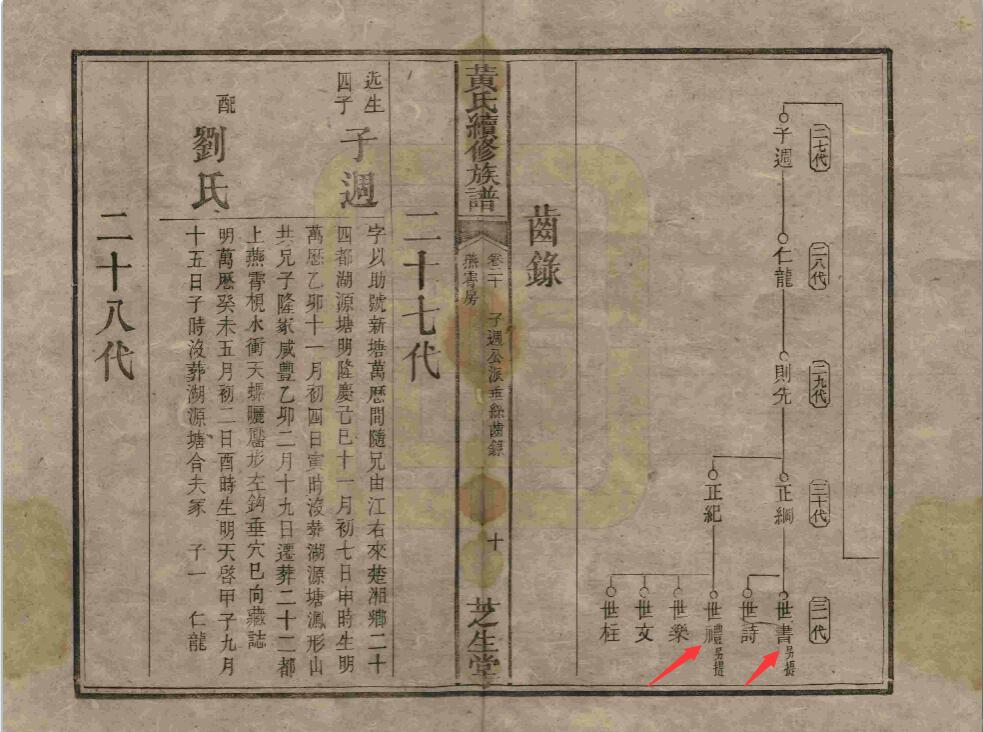 二七代
子週
二八代
仁龍
二九代
則先
三十代
正綱
正紀
三一代
世書 另提
世詩
世禮 另提
世樂
世文
世柱
齒錄
黃氏續修族譜
卷二十 子週公派垂絲齒錄
燕霄房
十
芝生堂
二十七代
迯生
四子
子週
字以助號新塘萬厯間隨兄由江右來楚湘鄉二十
四都湖源塘明隆慶己巳十一月初七日申時生明
萬厯乙卯十一月初四日寅時沒葬湖源塘鳳形山
共兄子隆冢咸豐乙卯二月十九日遷葬二十二都
上燕霄梘水衝天螺曬靨形左鈎垂穴巳向藏誌
配
劉氏
明萬厯癸未五月初二日酉時生明天啓甲子九月
十五日子時沒葬湖源塘合夫冢 子一 仁龍
二十八代